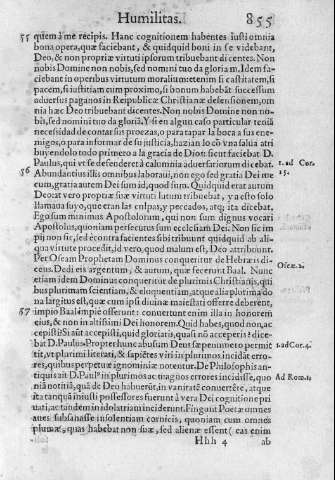 Humilitas. 855
55 quem à me recipis. Hanc cognitionem habentes iusti omnia
bona opera, quæ faciebant, & quidquid boni in se videbant,
Deo, & non propriæ virtuti ipsorum tribuebant dicentes. Non
nobis Domine non nobis, sed nomini tuo da gloriam. Idem faciebant
in operibus virtutum moralium: etenim si castitatem, si
pacem, si iustitiam cum proximo, si bonum habebāt successum
aduersus paganos in Reipublicæ Christianæ defensionem, omnia
hæc Deo tribuebant dicentes. Non nobis Domine non nobis,
sed nomini tuo da gloriā. Y si en algun caso particular teniā
necessidad de contar sus proezas, o para tapar la boca a sus enemigos,
o para informar de su justicia, hazian lo cō vna salua atribuyendolo
todo primero a la gracia de Dios: sicut faciebat D.
Paulus, qui vt se defenderet à calumnia aduersariorum dicebat. 1. ad Cor. 15.
56 Abundantius illis omnibus laboraui, non ego sed gratia Dei mecum,
gratia autem Dei sum id, quod sum. Quidquid erat autum
Deo: at vero propriæ suæ virtuti latum tribuebat, y a esto solo
llamaua suyo, que eran las culpas, y peccados, atq; ita dicebat.
Ego sum minimus Apostolorum, qui non sum dignus vocari
Apostolus, quoniam persecutus sum ecclesiam Dei. Non sic impij
non sic, sed econtra facientes sibi tribuunt quidquid ab aliqua
virtute procesit, id vero, quod malum est, Deo attribuunt.
Per Oseam Prophetam Dominus conqueritur de Hebræis dicens. Osee. 2.
Dedi eis argentum, & aurum, quæ fecerunt Baal. Nunc
etiam idem Dominus conqueritur de plurimis Christianis, quibus
plurimam scientiam, & eloquentiam, atque alia plurima dona
largitus est, quæ cum ipsi diuinæ maiestati offerre deberent,
57 impio Baal impie offerunt: conuertunt enim illa in honorem
eius, & non in altissimi Dei honorem. Quid habes, quod non, accepisti?
Si aūt accepisti, quid gloriaris, quasi nō acceperis? dicebat
D. Paulus. Propter hunc abusum Deus sæpenumero permittit, 1. ad Cor. 4.
vt plurimi literati, & sapiētes viri in plurimos incidāt errores,
quibus perpetuæ ignominiæ notentur. De Philosophis antiquis
ait D. Paulᵒ in plurimos ac magnos errores incidisse, quoniā Ad Rom. 1.
notitiā, quā de Deo habuerūt, in vanitatē conuertēre, atque
ita tanquā iniusti possessores fuerunt à vera Dei cognitione priuati,
ac tandem in idolatriam inciderunt. Fingunt Poetæ omnes
aues subsanasse insolentiam cornicis, quoniam cum omnes
plumæ, quas habebat non suæ, sed alienæ essent (eas enim
Hhh 4 ab